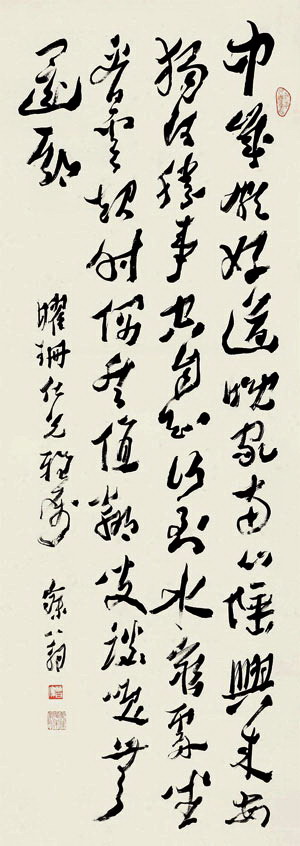 中歲頗好道晚家南山陲興來每
獨往勝事空自知行到水窮處坐
看雲起時偶然值鄰叟談笑無
還期
曜珊仁兄雅屬